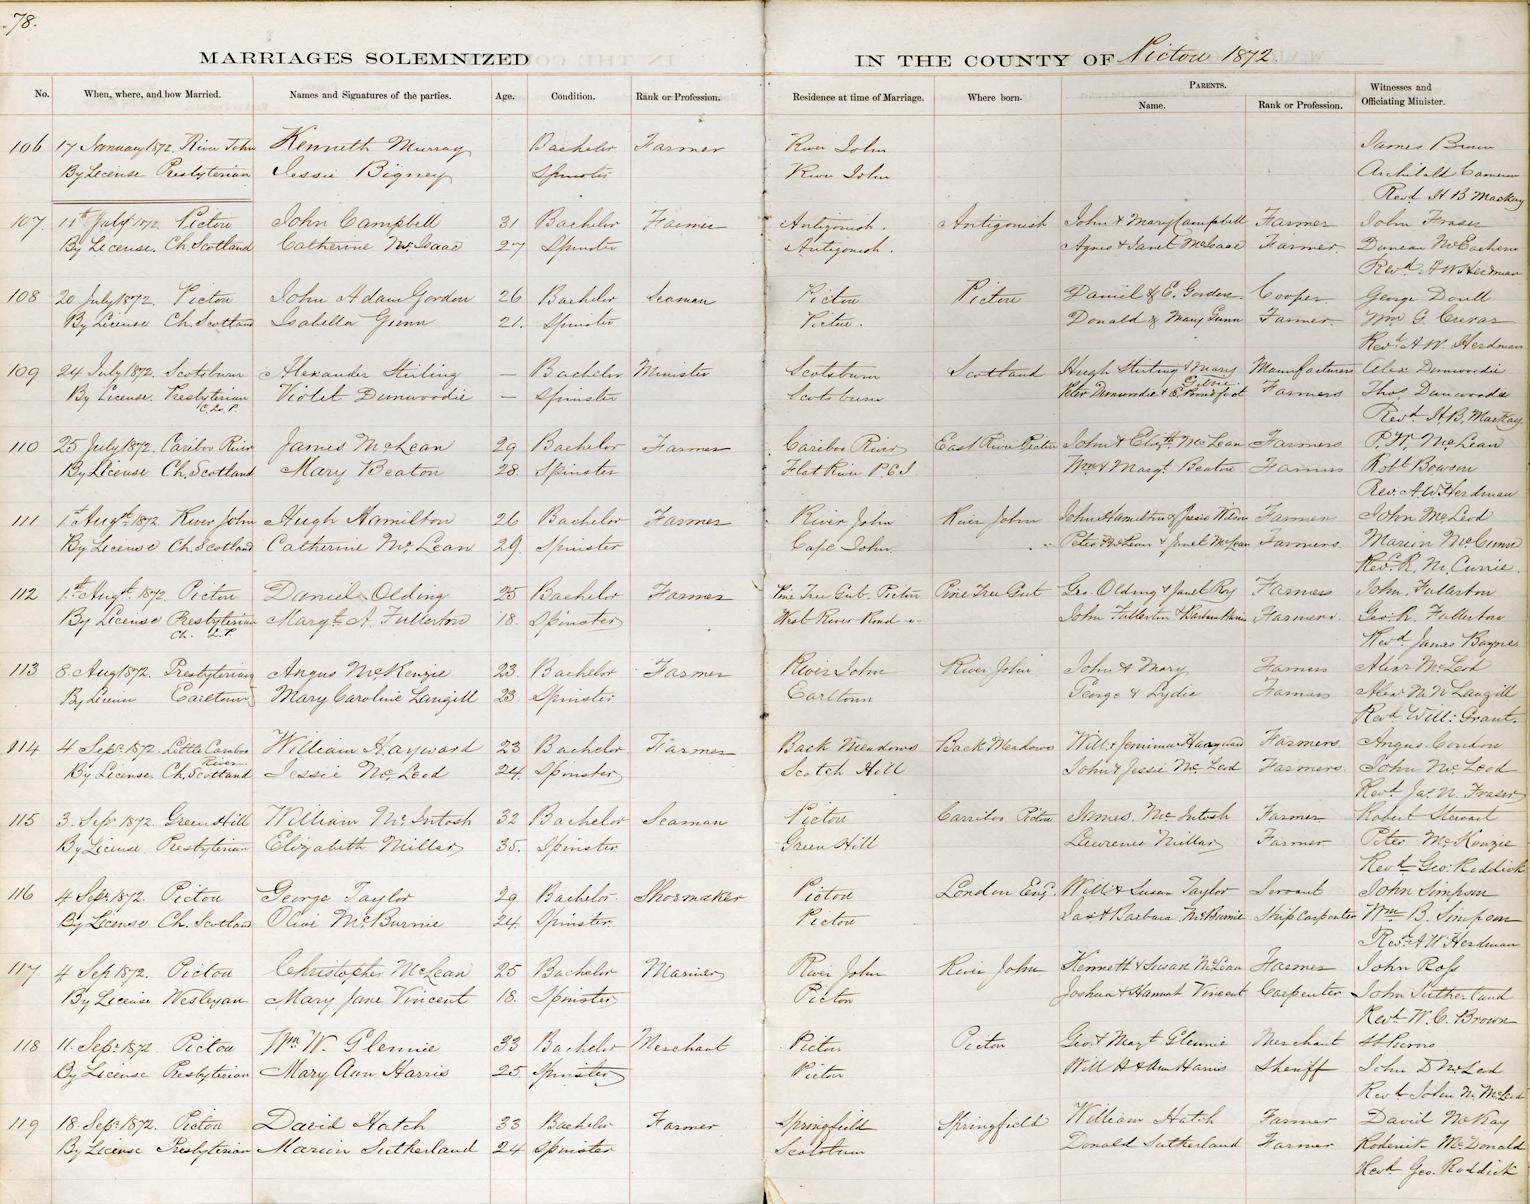 78.
MARRIAGES SOLEMNIZED IN THE COUNTY OF Pictou 1872.
No. When, where, and how Married. Names and Signatures of the parties. Age. Condition. Rank or Profession. Residence at time of Marriage. Where born. PARENTS. Name. Rank or Profession. Witnesses and Officiating Minister.
106 17 January 1872. River John Kenneth Murray Bachelor Farmer River John James
By License Presbyterian Jessie Bigney Spinster River John Archibald Cameron
Revd H B Mackay
107. 11th July 1872. Pictou John Campbell 31 Bachelor Farmer Antigonish. Antigonish John & Mary Campbell Farmer John Fraser
By License. Ch. Scotland Catherine McIsaac 27 Spinster Antigonish. Agnes & Janet McIsaac Farmer. Duncan McEachern
Revd A W Herdman
108 20 July 1872. Pictou John Adam Gordon 26 Bachelor Seaman Pictou Pictou Daniel & E. Gordon Cooper. George Doull
By License Ch. Scotland Isabella Gunn 21. Spinster Pictou. Donald & Mary Gunn Farmer. Wm G.
Revd A. W. Herdman
109 24 July 1872. Scotsburn Alexander Stirling — Bachelor Minister Scotsburn Scotland Hugh Stirling & Mary Manufacturers Alex Dunwoodie
Gilvie
By License. Presbyterian Violet Dunwoodie — Spinster Scotsburn Peter Dunwoodie & E. Proudfoot Farmers Thos Dunwoodie
C. L. P. Revd H. B. MacKay
110 25 July 1872. Caribou River James McLean 29 Bachelor Farmer Caribou River East River Pictou John & Elizth McLean Farmers P. W. McLean
By License Ch. Scotland Mary Beaton 28. Spinster Flat River P. E. I. Wm & Margt Beaton Farmers Robt
Rev. A. W. Herdman
111 1st Augst 1872 River John Hugh Hamilton 26 Bachelor Farmer River John River John John Hamilton & Jessie Wilson Farmers John McLeod
By License Ch. Scotland Catherine McLean 29. Spinster Cape John. Peter McLean & Janet McLean Farmers. Marion McCunn
Revd R. McCunn.
112 1st Augt. 1872. Pictou Daniel Olding 25 Bachelor Farmer Pine Tree Gut. Pictou Pine Tree Gut Geo. Olding & Janet Roy Farmers John. Fullerton
By License Presbyterian Margt A. Fullerton 18. Spinster West River Road John Fullerton & Farmers. Geo. R. Fullerton
Ch. L. P. Revd James Bayne
113 8. Aug 1872. Presbyterian Angus McKenzie 23. Bachelor Farmer River John River John John & Mary Farmers Alexr McLeod
By License Earltown Mary Caroline Langill 23. Spinster Earltown George & Lydia Farmers Alexr M. N Langill
Revd Will: Grant.
114 4 Sepr 1872. Little Caribou William Hayward 23 Bachelor Farmer Back Meadows Back Meadows Will. & Jemima Hayward Farmers Angus Condon
River
By License Ch. Scotland Jessie McLeod 24. Spinster Scotch Hill John & Jessie McLeod Farmers. John McLeod
Revd Jas. N. Fraser
115 3. Sepr 1872. Green Hill William McIntosh 32 Bachelor Seaman Pictou Carribou Pictou James McIntosh Farmer Robert Stewart
By License. Presbyterian Elizabeth Millar 35. Spinster Green Hill Lawrence Millar Farmer Peter McKenzie
Revd Geo. Roddick
116 4 Sepr 1872. Pictou George Taylor 29 Bachelor. Shoemaker Pictou London Eng. Will & Susan Taylor Servant John Simpson
By License Ch. Scotland Olive McBurnie 24. Spinster. Pictou Jas & Barbara McBurnie Ship Carpenter Wm B. Simpson
Revd A W Herdman
117 4 Sep 1872. Pictou Christopher McLean 25 Bachelor Mariner River John River John Kenneth & Susan McLean Farmer John Ross
By License Wesleyan Mary Jane Vincent 18. Spinster Pictou Joshua & Hannah Vincent Carpenter John Sutherland
Revd W. C. Brown
118 11. Sepr 1872. Pictou Wm W. Glennie 33 Bachelor Merchant Pictou Pictou Geo. & Margt Glennie Merchant
By License Presbyterian Mary Ann Harris 25. Spinster Pictou Will H & Ann Harris Sheriff John D McLeod
Revd John McLeod
119 18. Sepr 1872. Pictou David Hatch 33 Bachelor Farmer Springfield Springfield William Hatch Farmer David McKay
By License Presbyterian Marion Sutherland 24 Spinster Scotsburn Donald Sutherland Farmer Roderick McDonald
Revd Geo. Roddick